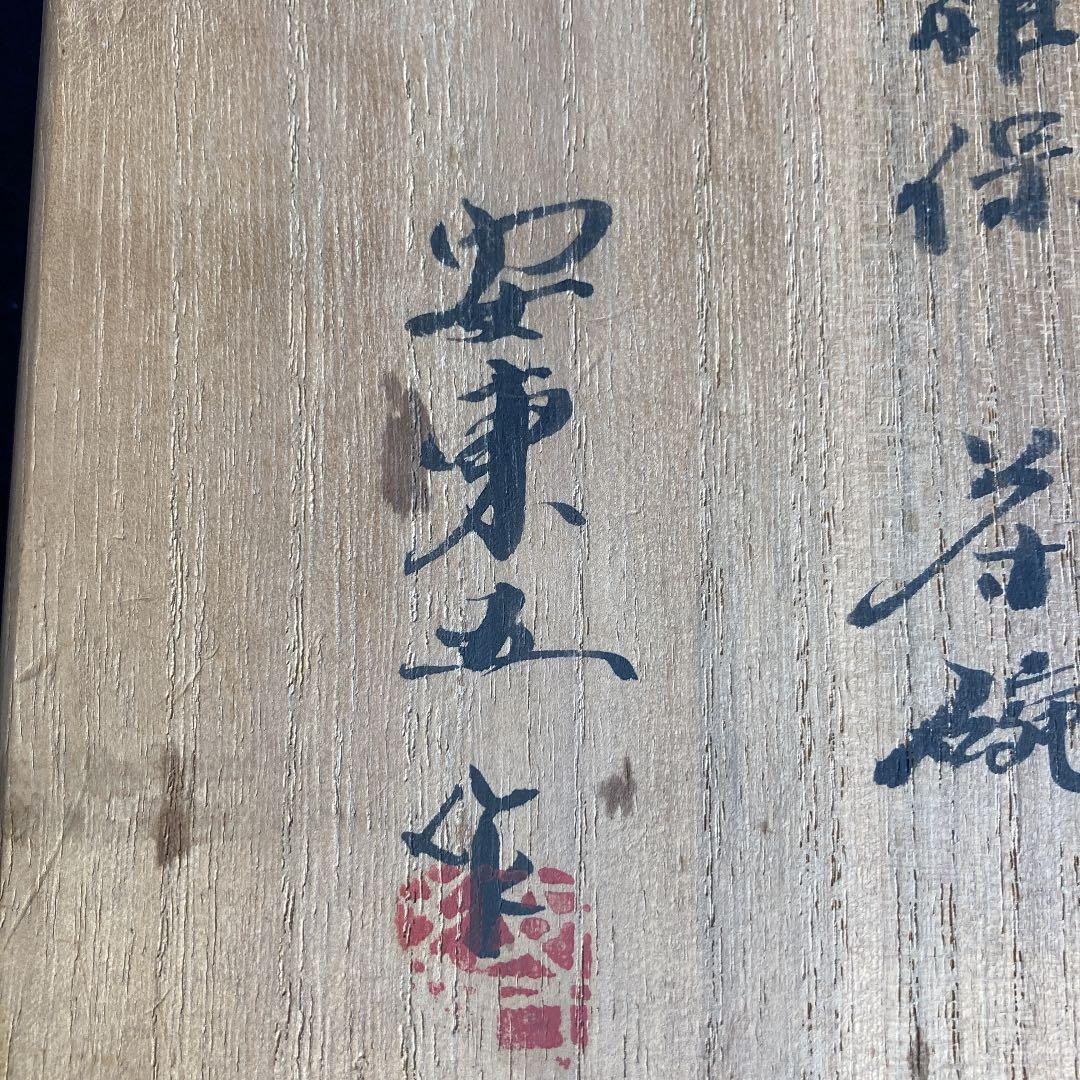 保茶碗
安東五
作